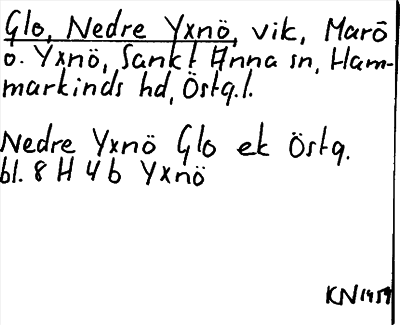 Glo, Nedre Yxnö, vik, Marö
o. Yxnö, Sankt Anna sn, Ham-
markinds hd, Östg.l.
Nedre Yxnö Glo ek Östg.
bl. 8 H 4 b Yxnö
KN 1959